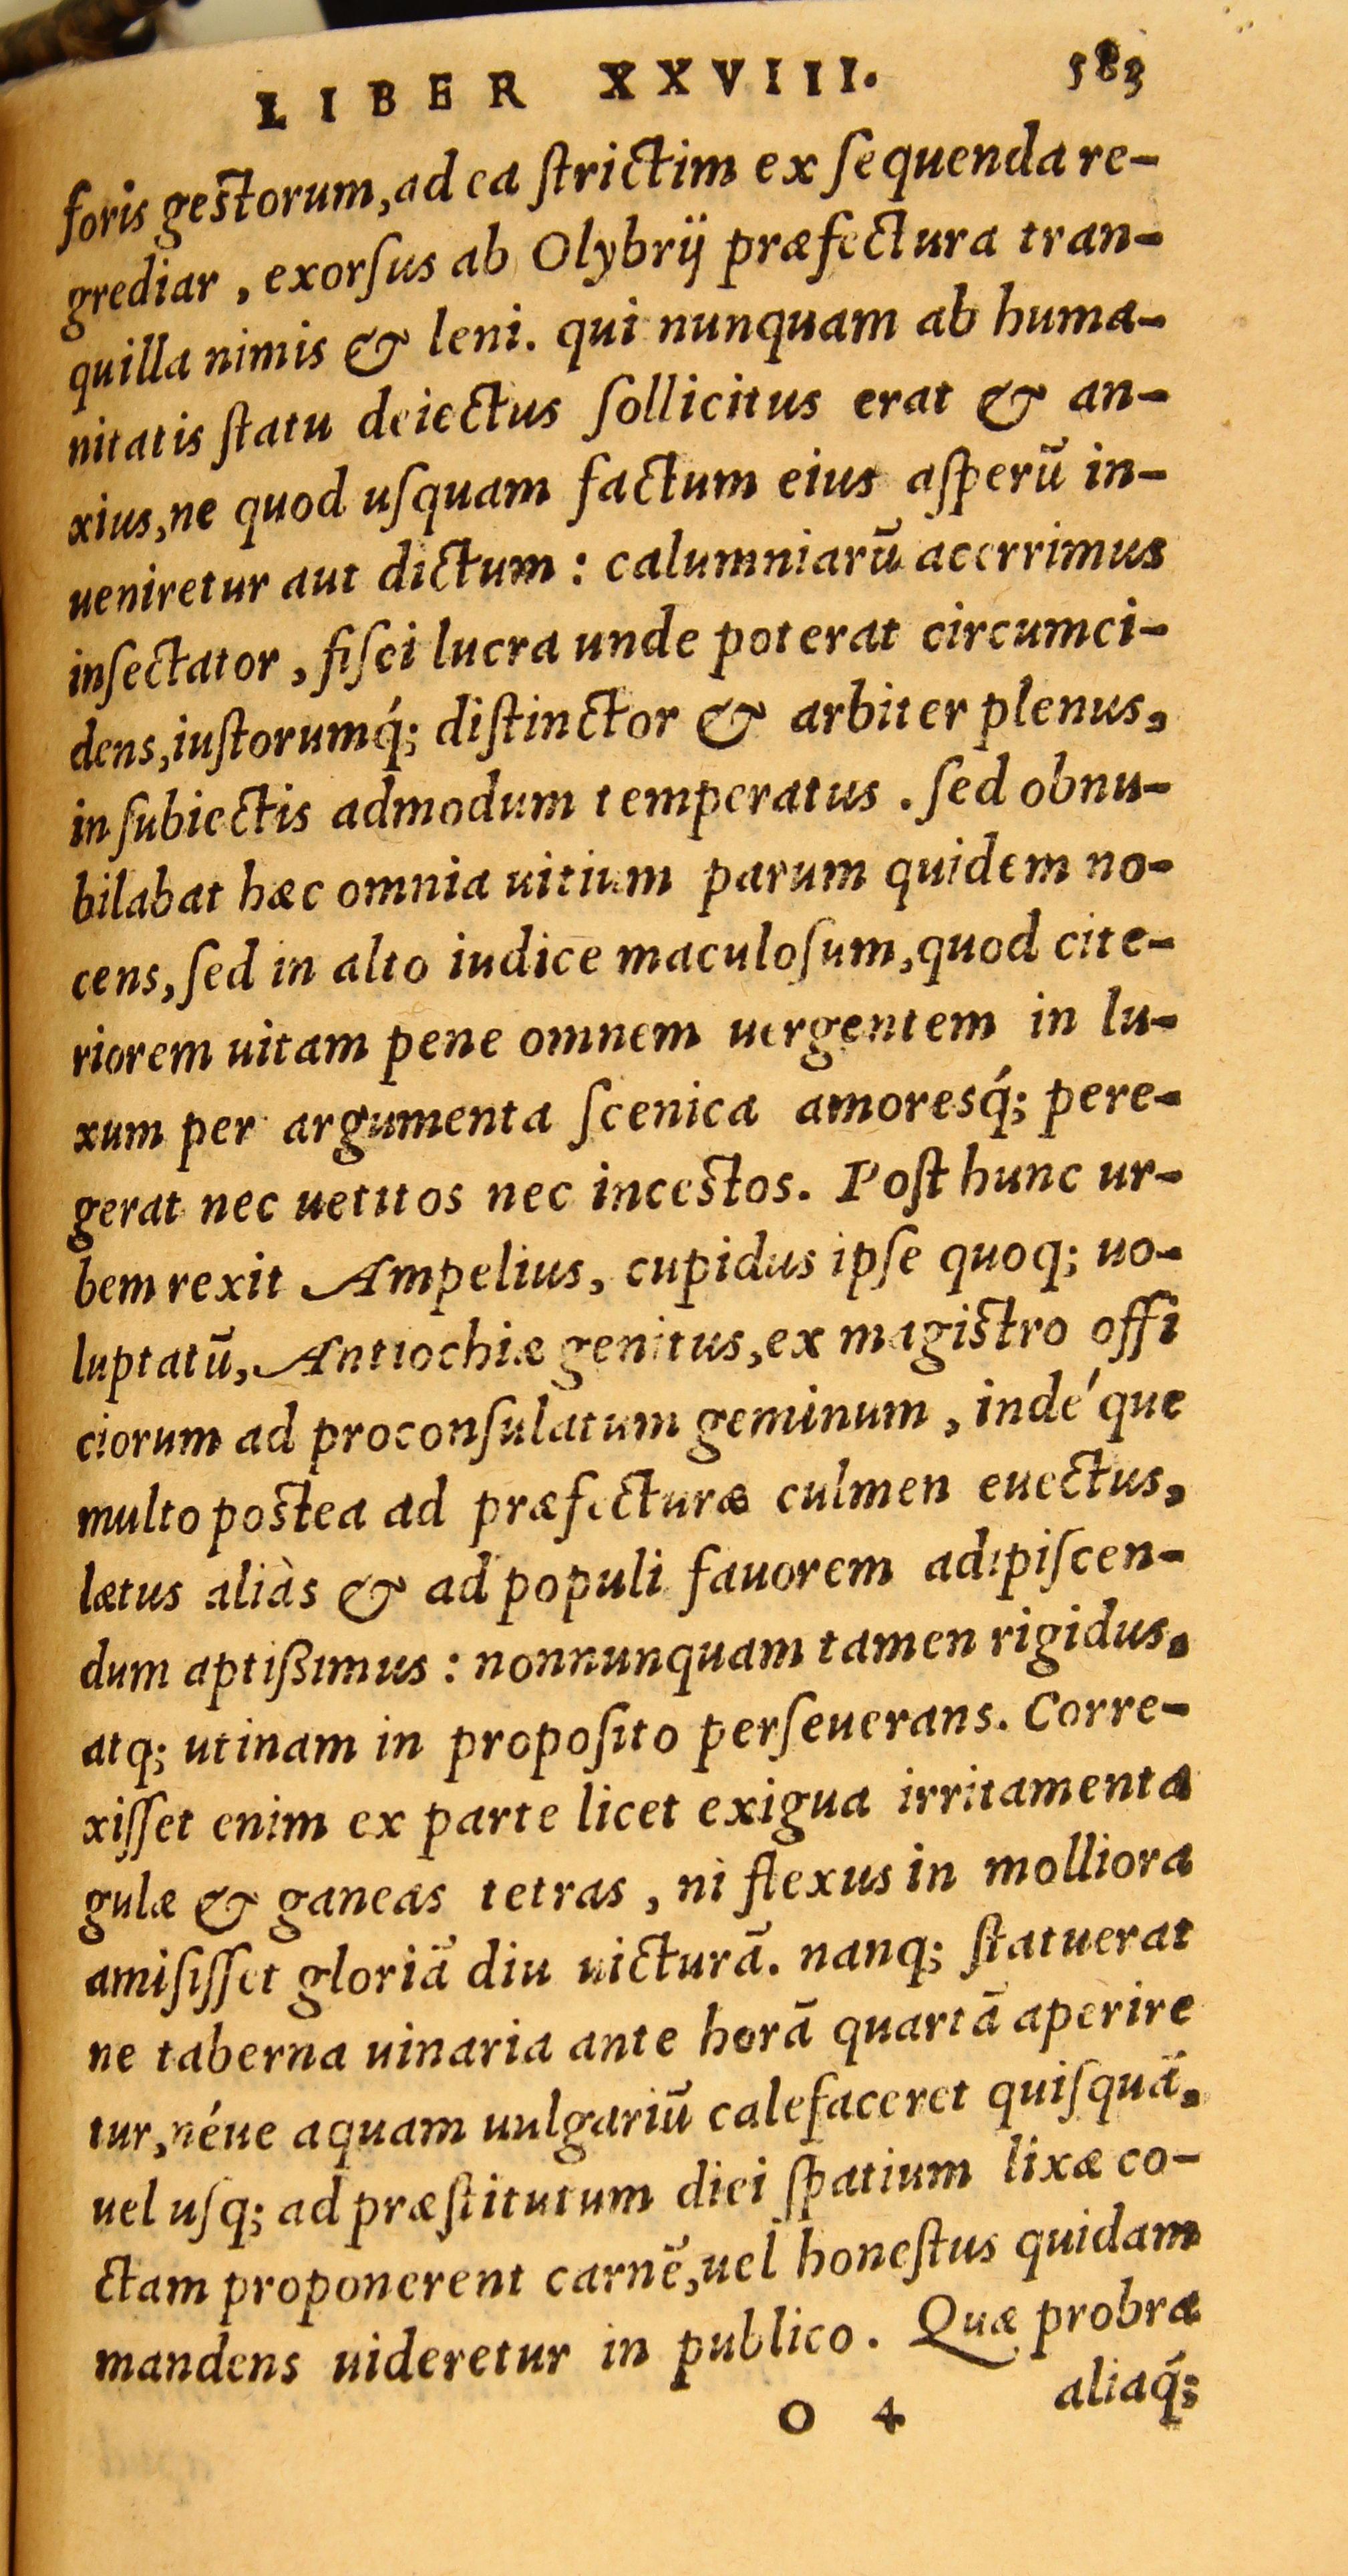 LIBER XXVIII. 583
foris gestorum, ad ea ſtrictim exſequenda re-
grediar, exorſus ab Olybrij præfectura tran-
quilla nimis & leni. qui nunquam ab huma-
nitatis ſtatu deiectus ſollicitus erat & an-
xius, ne quod uſquam factum eius aſperū in-
ueniretur aut dictum: calumniarū acerrimus
inſectator, fiſci lucra unde poterat circumci-
dens, iuſtorumq́; diſtinctor & arbiter plenus,
in ſubiectis admodum temperatus. ſed obnu-
bilabat hæc omnia uitium parum quidem no-
cens, ſed in alto iudice maculoſum, quod cite-
riorem uitam pene omnem uergentem in lu-
xum per argumenta ſcenica amoresq́; pere-
gerat nec uetitos nec incestos. Poſt hunc ur-
bem rexit Ampelius, cupidus ipſe quoq; uo-
luptatū, Antiochiæ genitus, ex magistro offi
ciorum ad proconſulatum geminum, indé que
multo postea ad præfecturæ culmen euectus,
lætus aliàs & ad populi fauorem adipiſcen-
dum aptiſſimus: nonnunquam tamen rigidus,
atq; utinam in propoſito perſeuerans. Corre-
xiſſet enim ex parte licet exigua irritamenta
gulæ & ganeas tetras, ni flexus in molliora
amiſiſſet gloriā diu uicturā. nanq; ſtatuerat
ne taberna uinaria ante horā quartā aperire
tur, néue aquam uulgariū calefaceret quiſquā,
uel uſq; ad præſtitutum diei ſpatium lixæ co-
ctam proponerent carnē, uel honeſtus quidam
mandens uideretur in publico. Quæ probra
O 4 aliaq́;